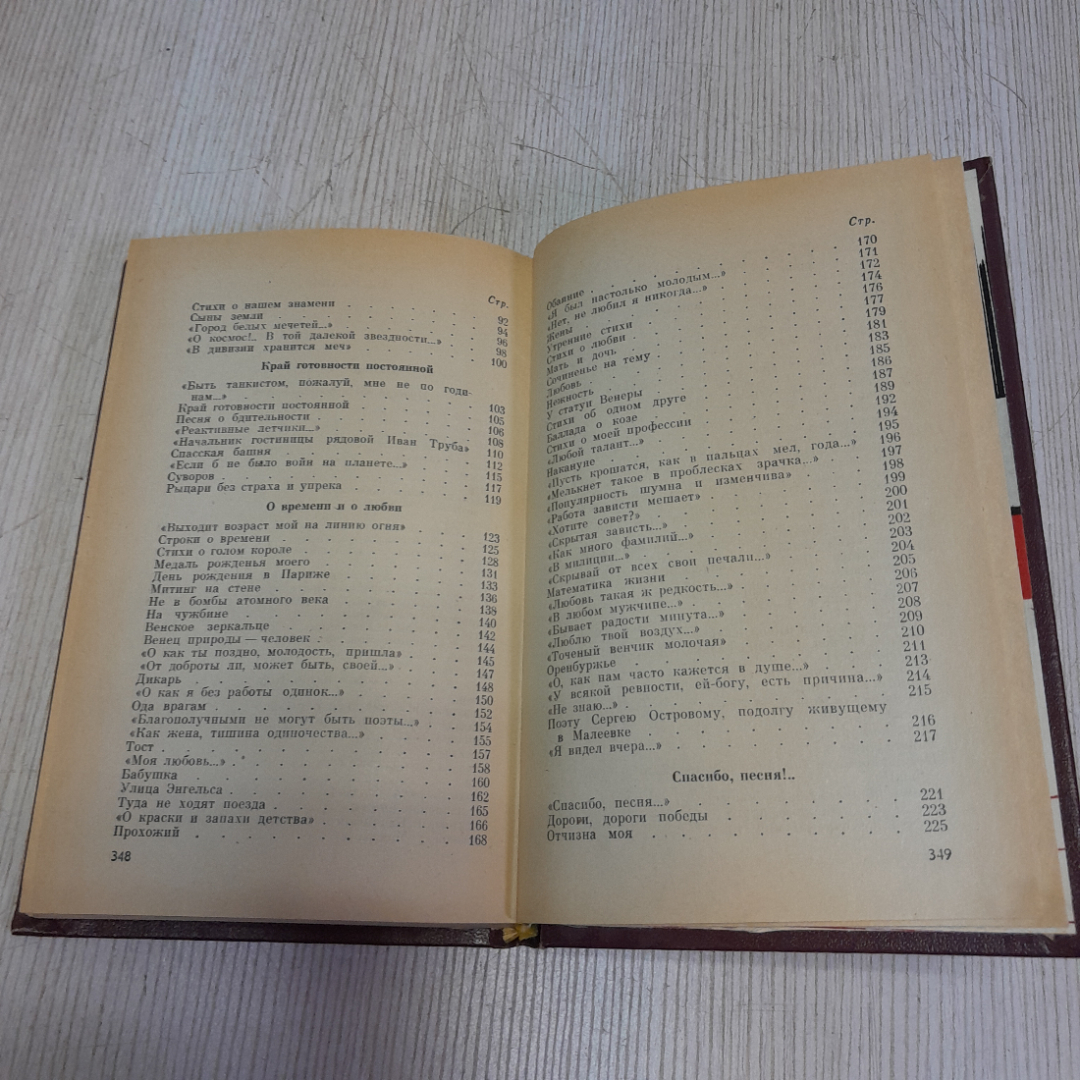 Стр.
Стихи о нашем знамени . . . . . . . 92
Сыны земли . . . . . . . . . 94
«Город белых мечетей...» . . . . . . . 96
«О космос!.. В той далекой звездности...» . . . 98
«В дивизии хранится меч» . . . . . . . 100
Край готовности постоянной
«Быть танкистом, пожалуй, мне не по годи-
нам...» . . . . . . . . . 103
Край готовности постоянной . . . . . . 105
Песня о бдительности . . . . . . . 106
«Реактивные летчики...» . . . . . . . 108
«Начальник гостиницы рядовой Иван Труба» . . 110
Спасская башня . . . . . . . . 112
«Если б не было войн на планете...» . . . . 115
Суворов . . . . . . . . . 117
Рыцари без страха и упрека . . . . . . 119
О времени и о любви
«Выходит возраст мой на линию огня» . . . . 123
Строки о времени . . . . . . . . 125
Стихи о голом короле . . . . . . . 128
Медаль рожденья моего . . . . . . . 131
День рождения в Париже . . . . . . . 133
Митинг на стене . . . . . . . . 136
Не в бомбы атомного века . . . . . . 138
На чужбине . . . . . . . . . 140
Венское зеркальце . . . . . . . . 142
Венец природы — человек . . . . . . . 144
«О как ты поздно, молодость, пришла» . . . . 145
«От доброты ли, может быть, своей...» . . . . 147
Дикарь . . . . . . . . . . 148
«О как я без работы одинок...» . . . . . 150
Ода врагам . . . . . . . . . 152
«Благополучными не могут быть поэты...» . . . 154
«Как жена, тишина одиночества...» . . . . 155
Тост . . . . . . . . . . 157
«Моя любовь...» . . . . . . . . 158
Бабушка . . . . . . . . . . 160
Улица Энгельса . . . . . . . . 162
Туда не ходят поезда . . . . . . . 165
«О краски и запахи детства» . . . . . . 166
Прохожий . . . . . . . . . . 168
348
Стр.
Обаяние . . . . . . . . . . 170
«Я был настолько молодым...» . . . . . 171
«Нет, не любил я никогда...» . . . . . . 172
Жены . . . . . . . . . . 174
Утренние стихи . . . . . . . . 176
Стихи о любви . . . . . . . . 177
Мать и дочь . . . . . . . . . 179
Сочиненье на тему . . . . . . . . 181
Любовь . . . . . . . . . . 183
Нежность . . . . . . . . . . 185
У статуи Венеры . . . . . . . . 186
Стихи об одном друге . . . . . . . 187
Баллада о козе . . . . . . . . 189
Стихи о моей профессии . . . . . . . 192
«Любой талант...» . . . . . . . . 194
Накануне . . . . . . . . . . 195
«Пусть крошатся, как в пальцах мел, года...» . . 196
«Мелькнет такое в проблесках зрачка...» . . . 197
«Популярность шумна и изменчива» . . . . 198
«Работа зависти мешает» . . . . . . . 199
«Хотите совет?» . . . . . . . . 200
«Скрытая зависть...» . . . . . . . 201
«Как много фамилий...» . . . . . . . 202
«В милиции...» . . . . . . . . 203
«Скрывай от всех свои печали...» . . . . . 204
Математика жизни . . . . . . . . 205
«Любовь такая ж редкость...» . . . . . . 206
«В любом мужчине...» . . . . . . . 207
«Бывает радости минута...» . . . . . . 208
«Люблю твой воздух...» . . . . . . . 209
«Точеный венчик молочая» . . . . . . 210
Оренбуржье . . . . . . . . . 211
«О, как нам часто кажется в душе...» . . . . 213
«У всякой ревности, ей-богу, есть причина...» . . 214
«Не знаю...» . . . . . . . . . 215
Поэту Сергею Островому, подолгу живущему
в Малеевке . . . . . . . . . 216
«Я видел вчера...» . . . . . . . . 217
Спасибо, песня!..
«Спасибо, песня...» . . . . . . . . 221
Дороги, дороги победы . . . . . . . 223
Отчизна моя . . . . . . . . . 225
349